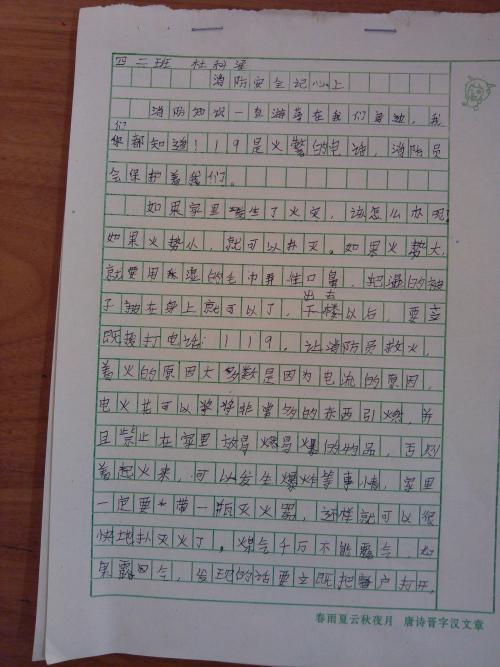 四二班 杜科
消防安全记心上
消防知识一直游荡在我们身边，我
们
都知道！119是火警的电话，消防员
会保护着我们。
如果家里发生了火灾，该怎么办呢？
如果火势小，就可以扑灭。如果火势大，
就要用湿的毛巾捂住口鼻，把湿的被
出去
子披在身上就可以了，下楼以后，要立
既拨打电话：119。让消防员救火，
着火的原因大多数是因为电流的原因，
电火花可以将非常多的东西引燃，并
且禁止在家里放易燃易爆的物品，否则
着起火来，可以发生爆炸等事情，家里
一定要带一瓶灭火器，这样就可以很
快地扑灭火了。煤气千万不能露气，如
果露了气，发现的话要立既把窗户打开，
春雨夏云秋夜月 唐诗晋字汉文章